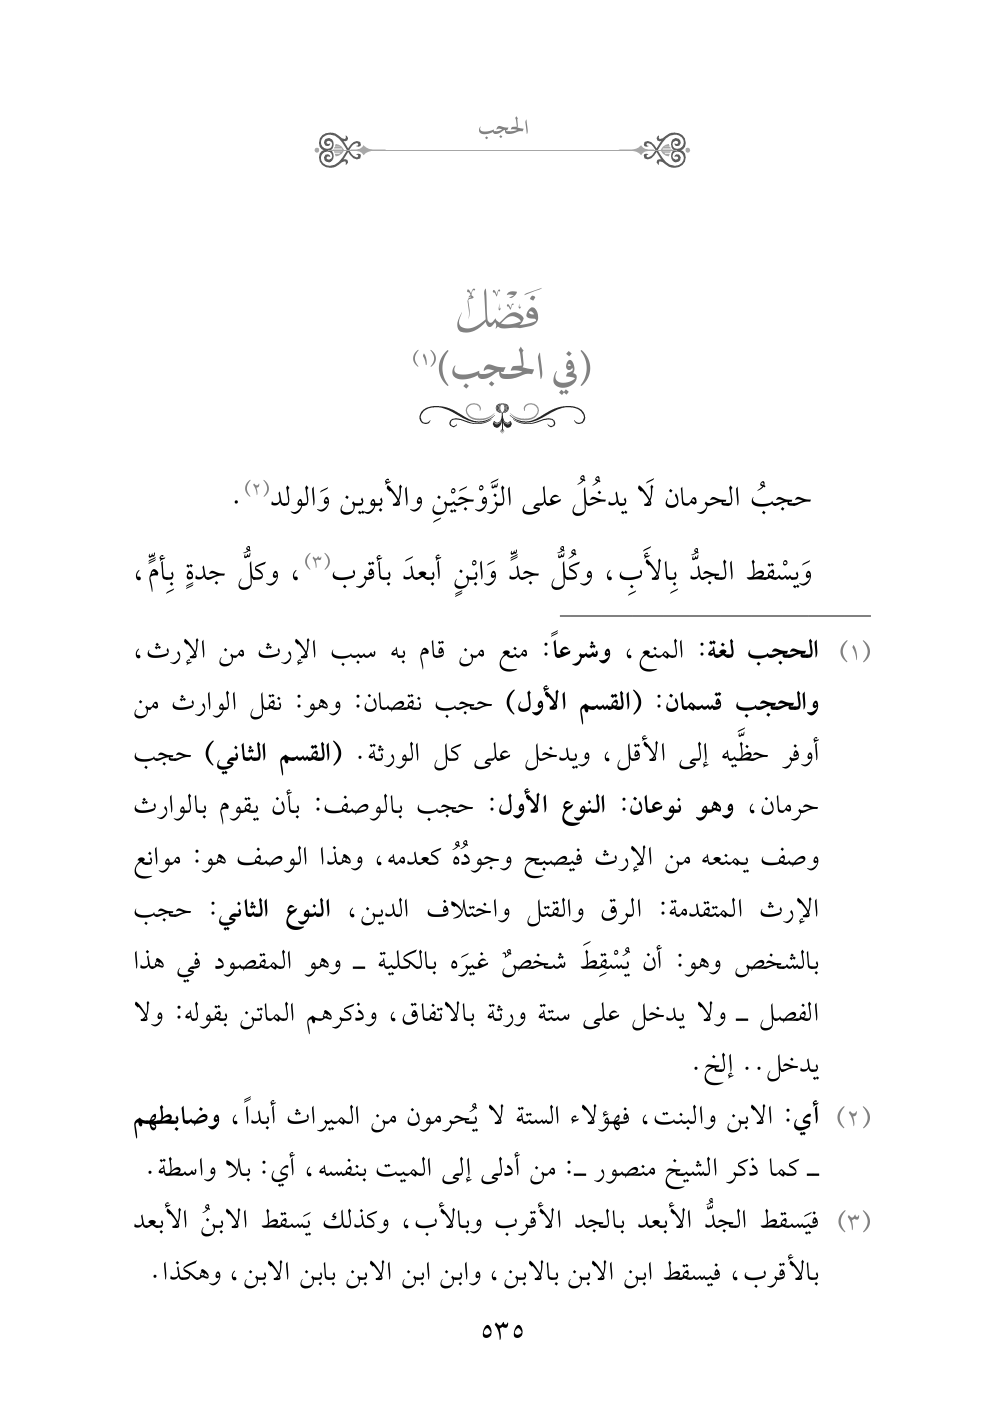 الحجب
فَصْلٌ
(في الحجب)(١)
حجبُ الحرمان لَا يدخُلُ على الزَّوْجَيْنِ والأبوين وَالولد(٢).
وَيسْقط الجدُّ بِالأَبِ، وكُلُّ جدٍّ وَابْنٍ أبعدَ بأقرب(٣)، وكلُّ جدةٍ بِأمٍّ،
(١) الحجب لغة: المنع، وشرعاً: منع من قام به سبب الإرث من الإرث،
والحجب قسمان: (القسم الأول) حجب نقصان: وهو: نقل الوارث من
أوفر حظَّيه إلى الأقل، ويدخل على كل الورثة. (القسم الثاني) حجب
حرمان، وهو نوعان: النوع الأول: حجب بالوصف: بأن يقوم بالوارث
وصف يمنعه من الإرث فيصبح وجودُهُ كعدمه، وهذا الوصف هو: موانع
الإرث المتقدمة: الرق والقتل واختلاف الدين، النوع الثاني: حجب
بالشخص وهو: أن يُسْقِطَ شخصٌ غيرَه بالكلية ـ وهو المقصود في هذا
الفصل ـ ولا يدخل على ستة ورثة بالاتفاق، وذكرهم الماتن بقوله: ولا
يدخل.. إلخ.
(٢) أي: الابن والبنت، فهؤلاء الستة لا يُحرمون من الميراث أبداً، وضابطهم
ـ كما ذكر الشيخ منصور ـ: من أدلى إلى الميت بنفسه، أي: بلا واسطة.
(٣) فيَسقط الجدُّ الأبعد بالجد الأقرب وبالأب، وكذلك يَسقط الابنُ الأبعد
بالأقرب، فيسقط ابن الابن بالابن، وابن ابن الابن بابن الابن، وهكذا.
٥٣٥